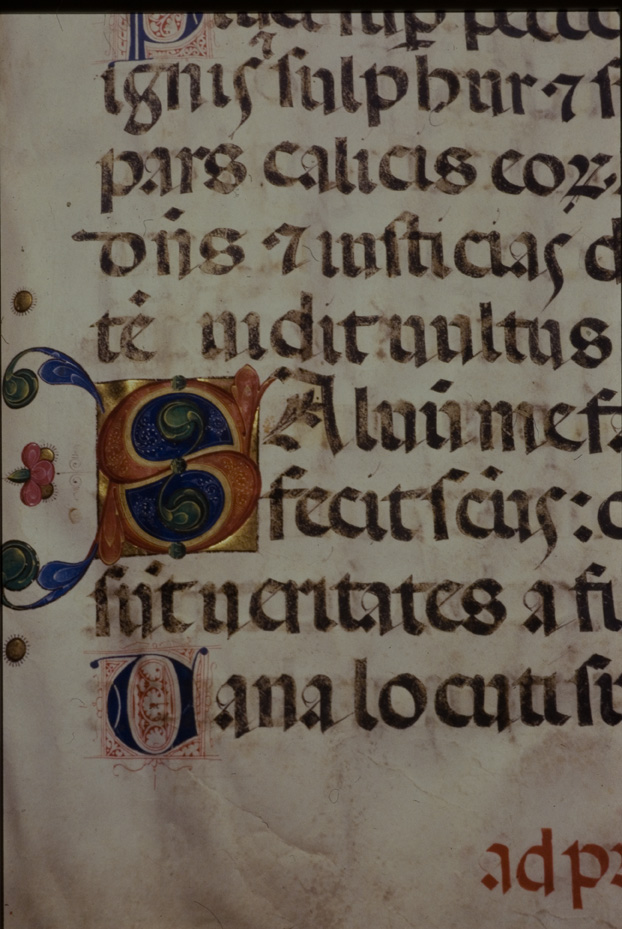 Pluet sup pecca
ignis sulphur ⁊ s
pars calicis eoꝝ.
dn̄s ⁊ iusticias d
tē uidit uultus
SAluū me f
fecit scūs: q
sūt ueritates a fi
Uana locuti su
ad pr